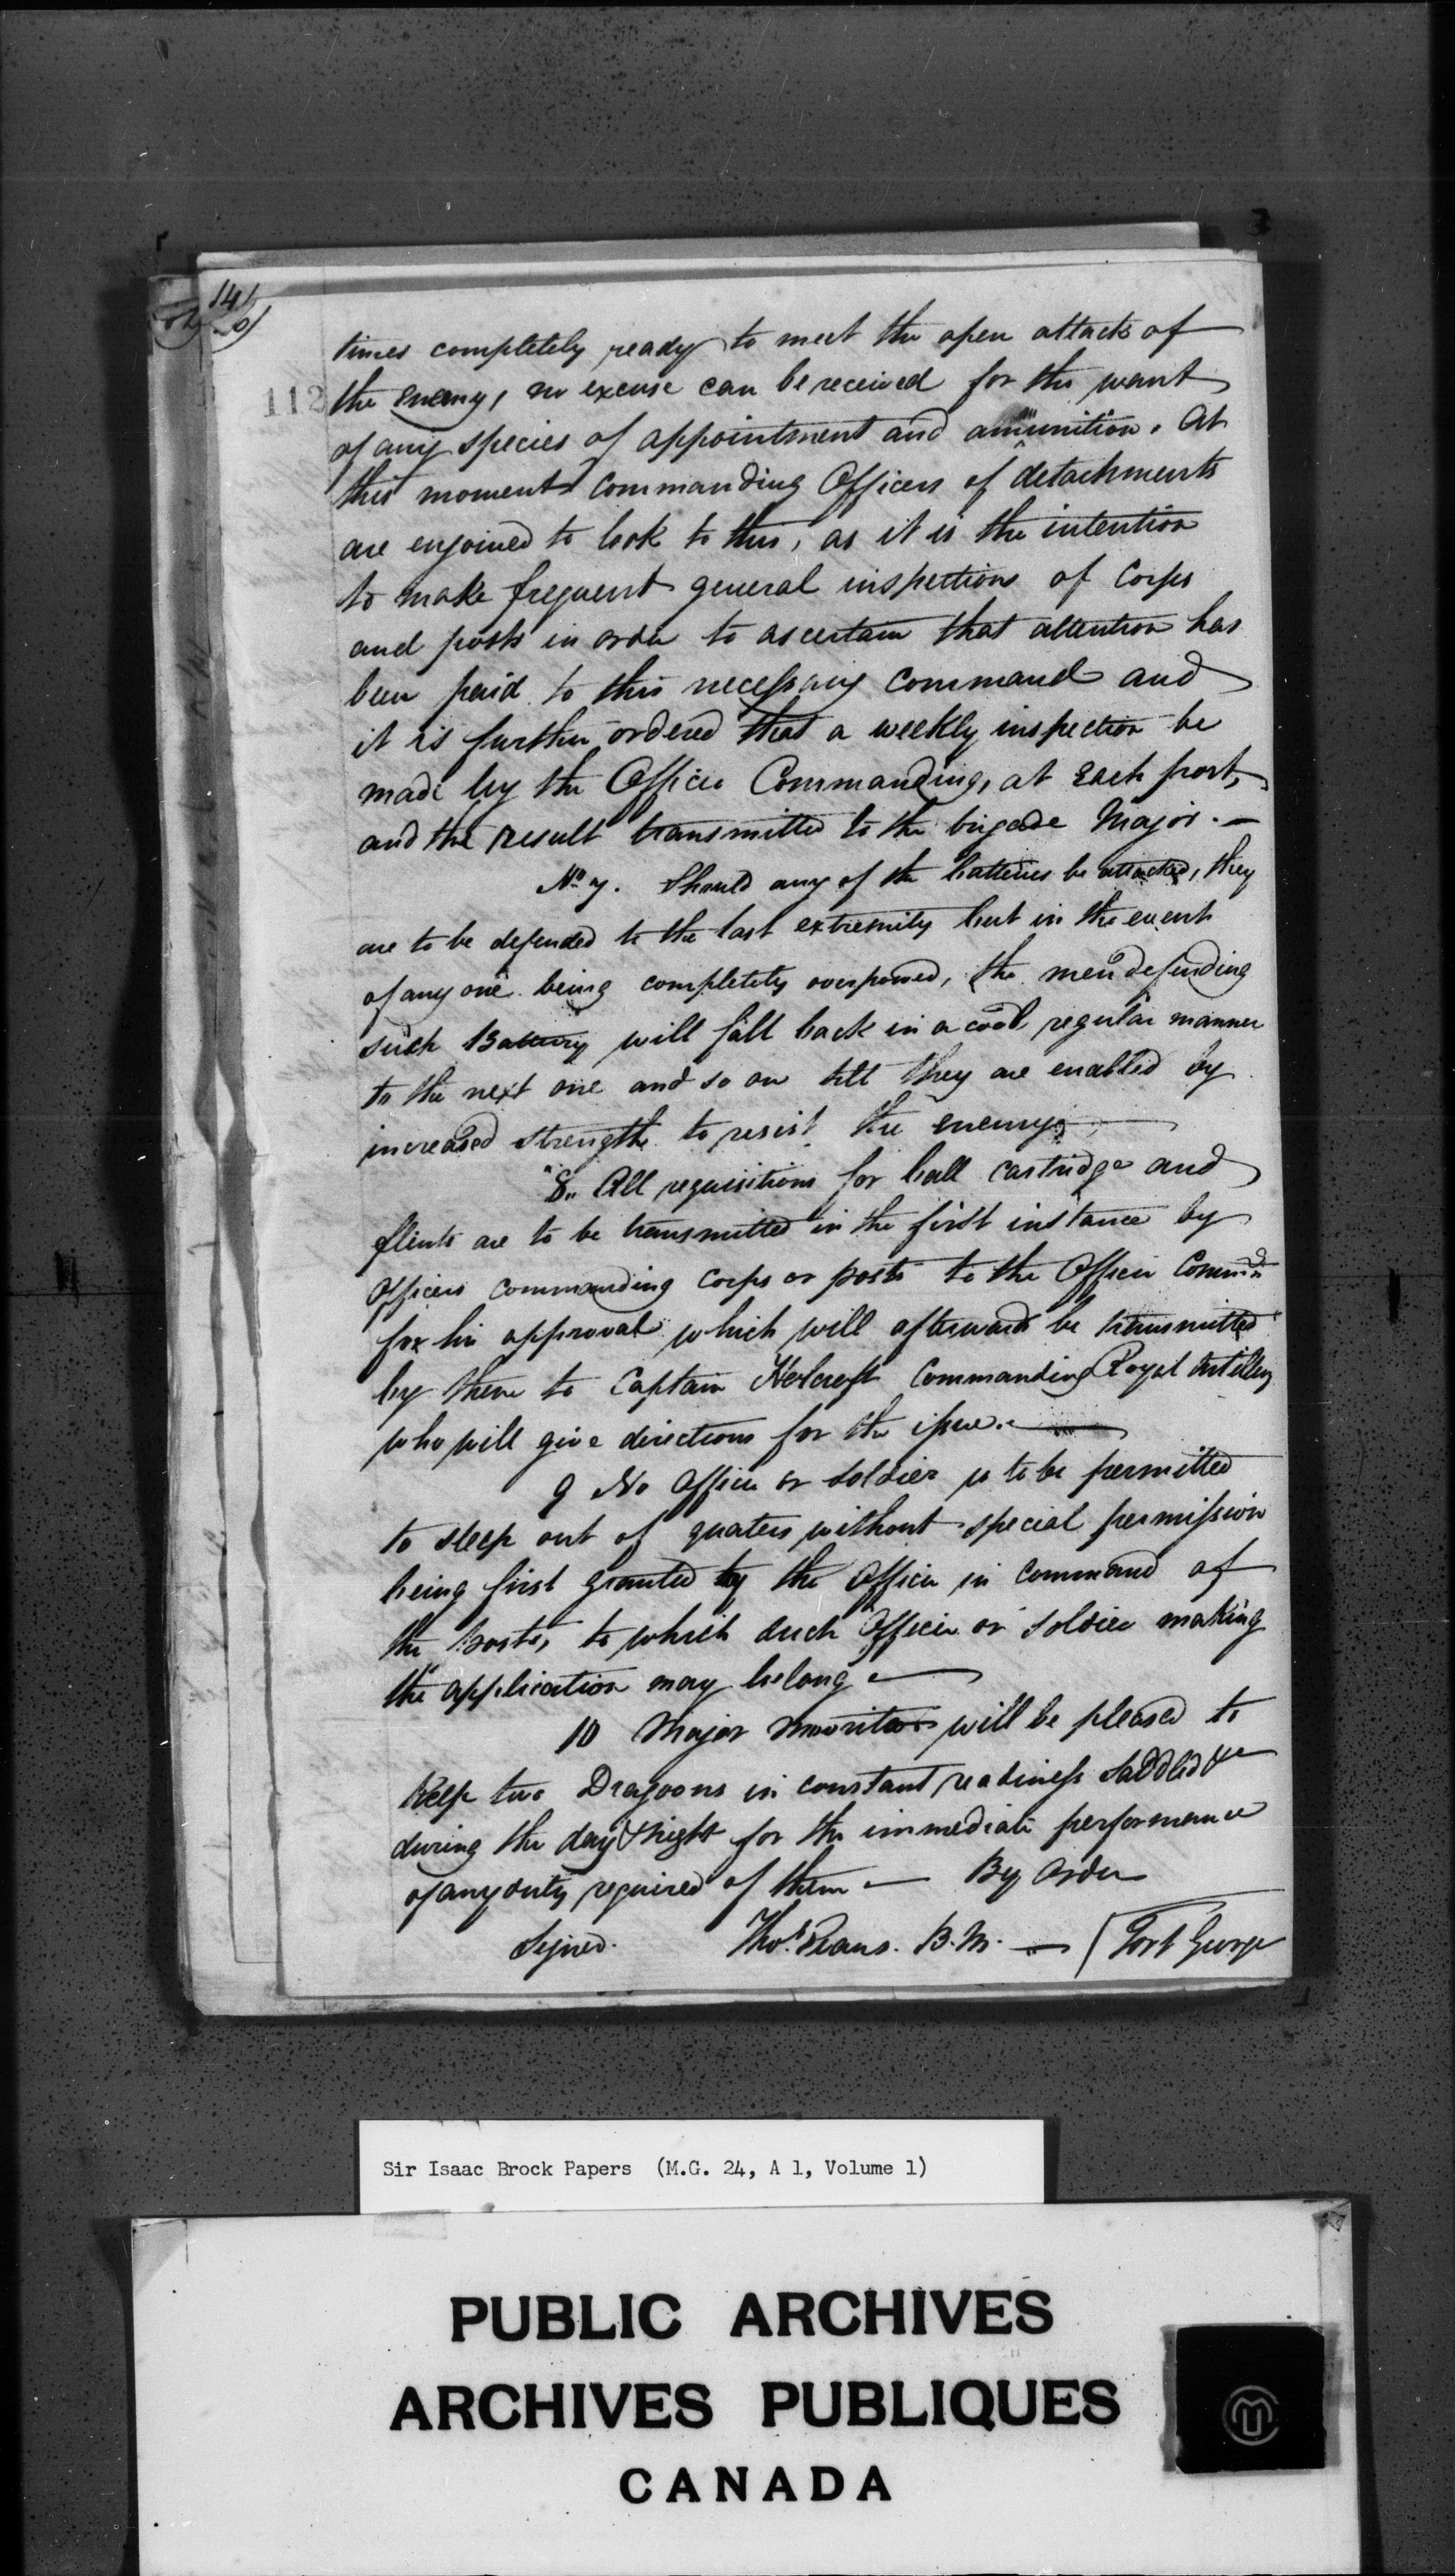 141
112
times completely ready to meet the open attack of
the Enemy, no excuse can be received for the want
of any species of appointment and amunition. At
this moment Commanding Officers of detachments
are enjoined to look to this, as it is the intention
to make frequent general inspections of Corps
and posts in order to ascertain that attention has
been paid to this necessary command and
it is further ordered that a weekly inspection be
made by the Officer Commanding, at Each post,
and the result transmitted to the brigade Major. —
No 7. Should any of the batteries be attacked, they
are to be defended to the last extremity but in the event
of any one being completely overpowed, the men defending
such Battery will fall back in a cool regular manner
to the next one and so on till they are enabled by
increased strength to resist the enemy —
"8" All requisitions for ball cartridge and
flints are to be transmitted in the first instance by
Officers commanding corps or posts to the Officer Command
for his approval which will afterwards be transmitted
by them to Captain Holcroft Commanding Royal Artillery
who will give directions for the issue. —
9 No Officer or Soldier is to be permitted
to sleep out of quaters without special permission
being first granted by the Officer in Command of
the posts, to which such Officer or Soldier making
the application may belong —
10 Major Merritt will be pleased to
Keep two Dragoons in constant readiness Saddled &c
during the day & night for the immediate performance
of any duty required of them — By Order
Signed. Thos. Evans. B.M. — (Fort George
Sir Isaac Brock Papers (M.G. 24, A 1, Volume 1)
PUBLIC ARCHIVES
ARCHIVES PUBLIQUES
CANADA